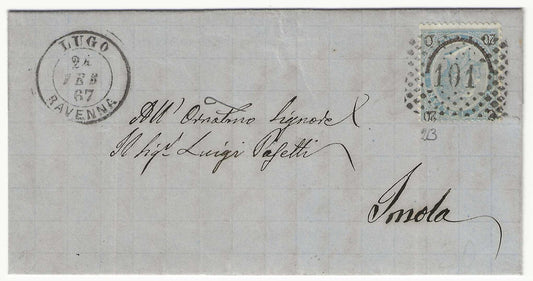 LUGO
24
FEB
67
RAVENNA
20
20
101
20
23
All' Ornatmo Signore
Il Sigr Luigi
Imola